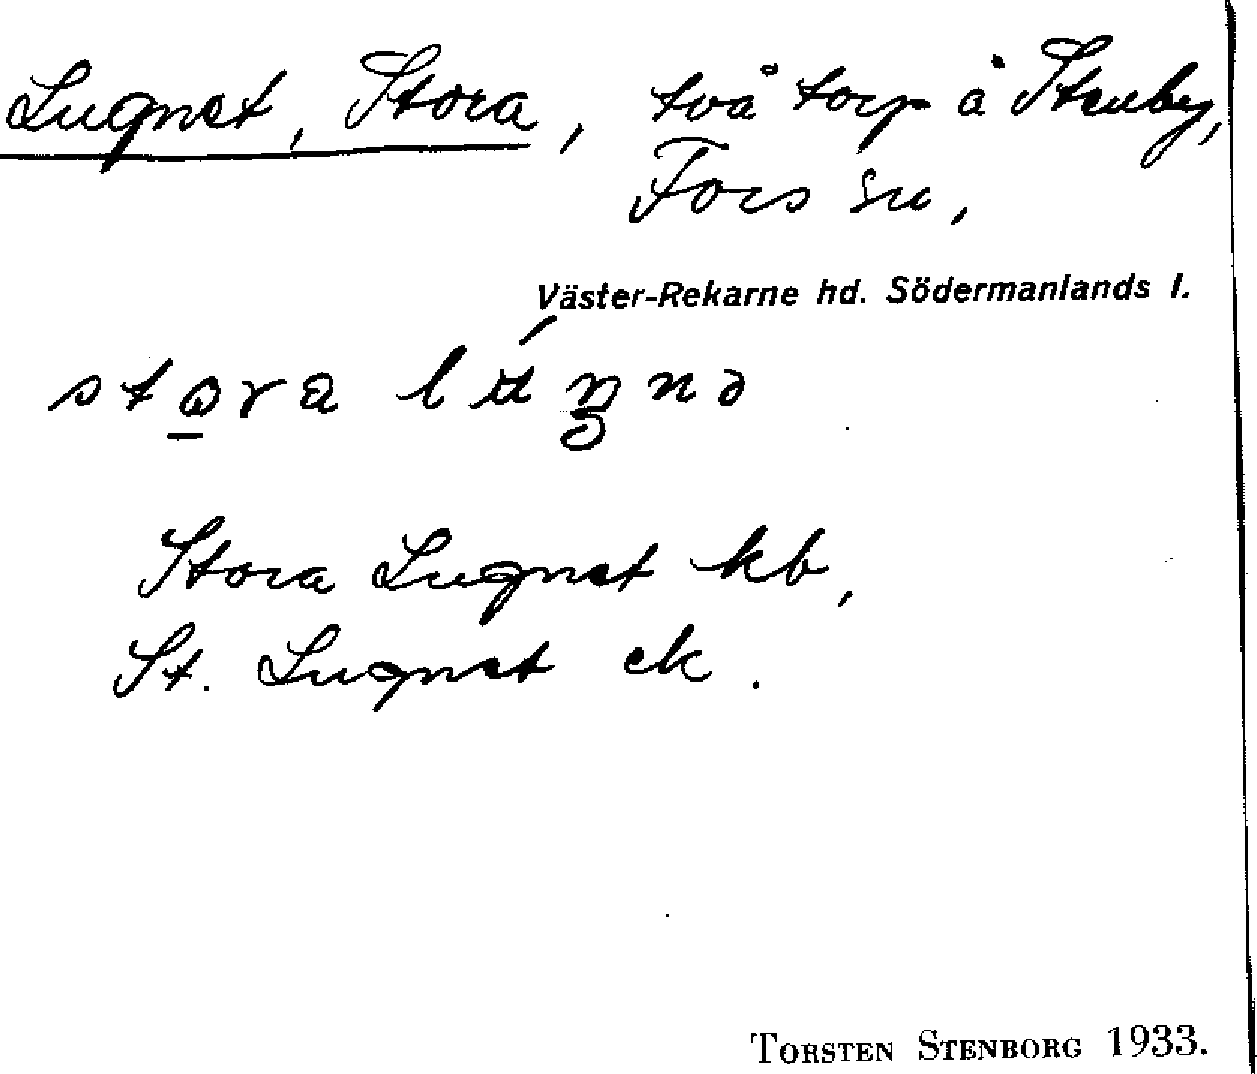 Lugnet, Stora, två torp å Stenby,
Fors sn,
Väster-Rekarne hd. Södermanlands l.
Stora Lugnet kb,
St. Lugnet ek.
TORSTEN STENBORG 1933.